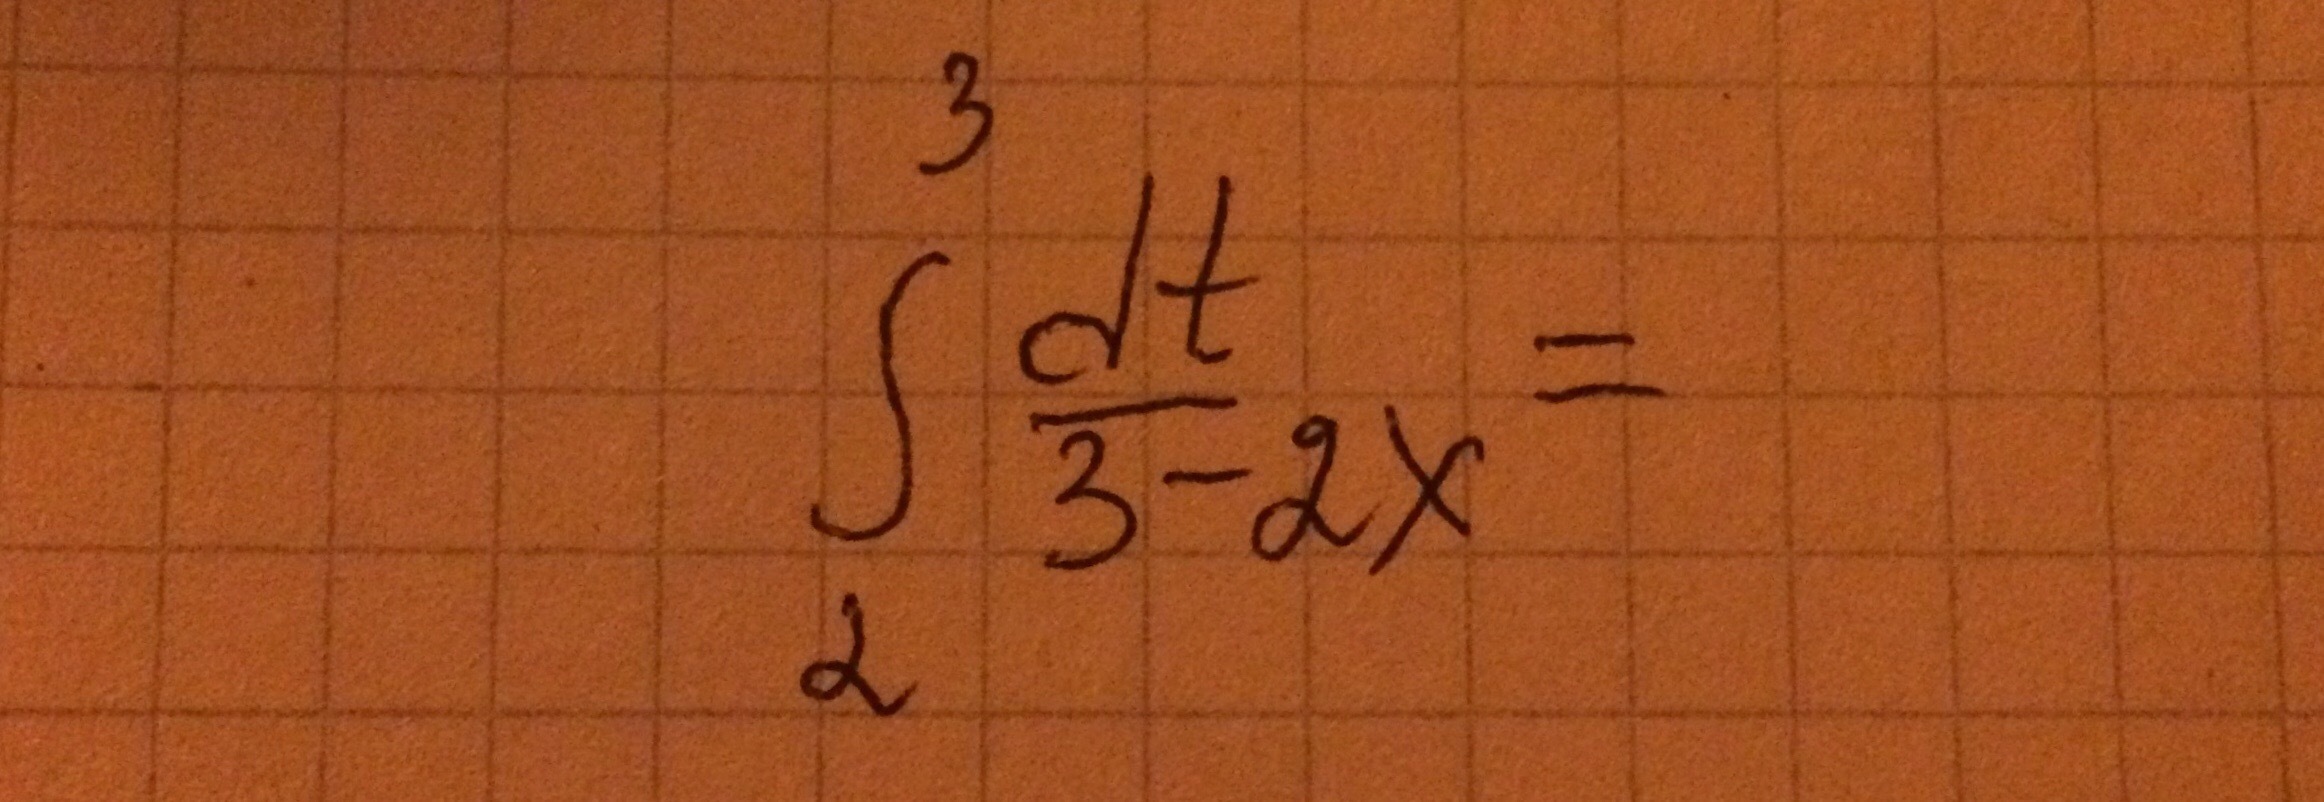 ∫₂³ dt/(3-2x) =